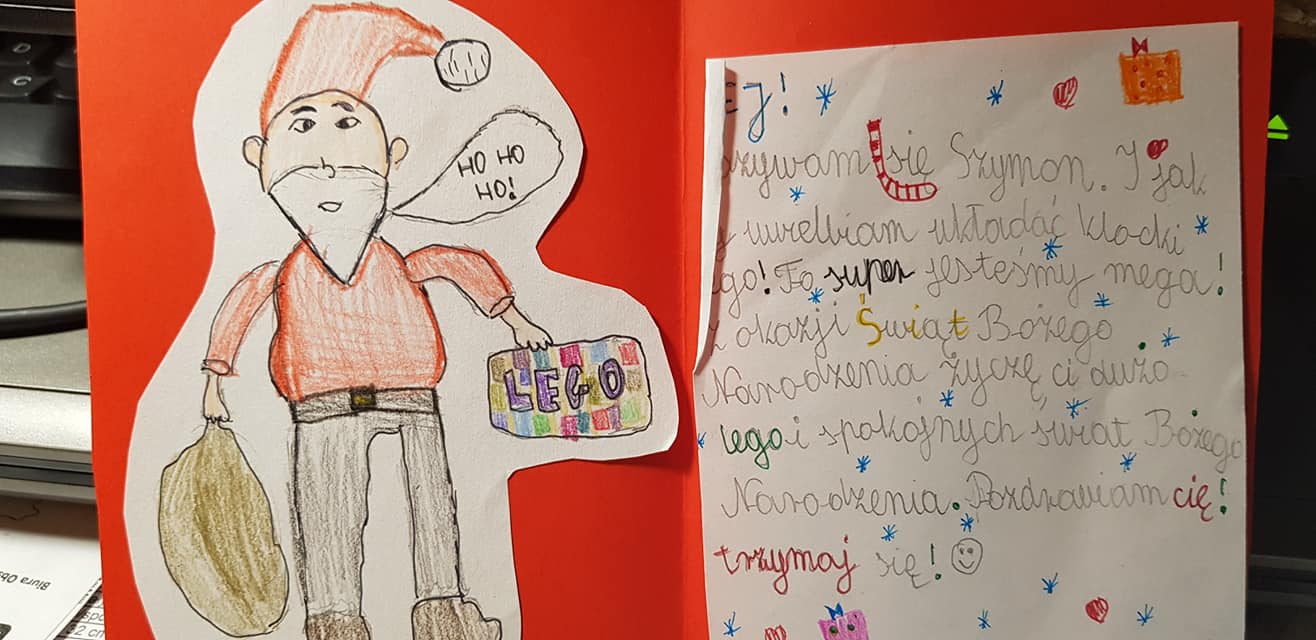 HO HO
HO!
LEGO
EJ!
zywam się Szymon. I jak
y uwielbiam układać klocki
ego! To super jesteśmy mega!
z okazji Świąt Bożego
Narodzenia życzę ci dużo
lego i spokojnych świat Bożego
Narodzenia. Pozdrawiam cię!
trzymaj się!
Biura Obs